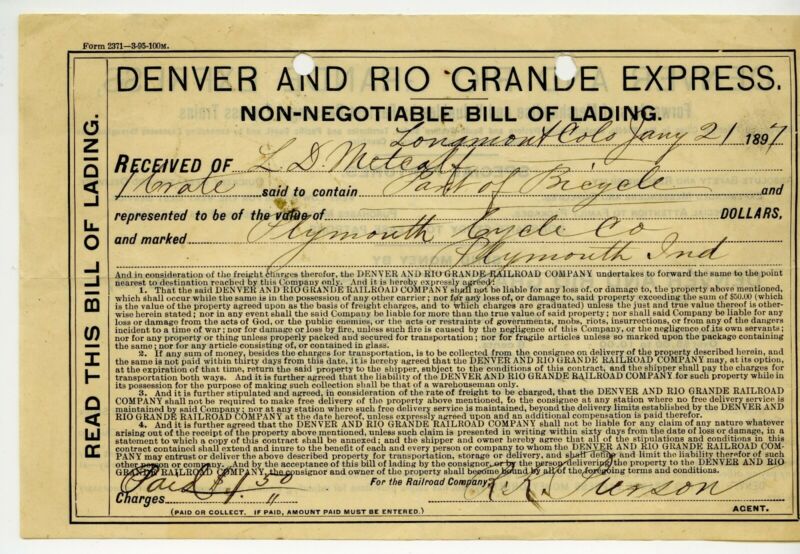 Form 2371—3-95-100M.
DENVER AND RIO GRANDE EXPRESS.
NON-NEGOTIABLE BILL OF LADING.
Longmont Colo Jany 21 1897
RECEIVED OF L. D. Metcalf
1 Crate said to contain Part of Bicycle and
represented to be of the value of DOLLARS,
and marked Plymouth Cycle Co
Plymouth Ind
And in consideration of the freight charges therefor, the DENVER AND RIO GRANDE RAILROAD COMPANY undertakes to forward the same to the point
nearest to destination reached by this Company only. And it is hereby expressly agreed:
1. That the said DENVER AND RIO GRANDE RAILROAD COMPANY shall not be liable for any loss of, or damage to, the property above mentioned,
which shall occur while the same is in the possession of any other carrier; nor for any loss of, or damage to, said property exceeding the sum of $50.00 (which
is the value of the property agreed upon as the basis of freight charges, and to which charges are graduated) unless the just and true value thereof is other-
wise herein stated; nor in any event shall the said Company be liable for more than the true value of said property; nor shall said Company be liable for any
loss or damage from the acts of God, or the public enemies, or the acts or restraints of governments, mobs, riots, insurrections, or from any of the dangers
incident to a time of war; nor for damage or loss by fire, unless such fire is caused by the negligence of this Company, or the negligence of its own servants;
nor for any property or thing unless properly packed and secured for transportation; nor for fragile articles unless marked upon the package containing
the same; nor for any article consisting of, or contained in glass.
2. If any sum of money, besides the charges for transportation, is to be collected from the consignee on delivery of the property described herein, and
the same is not paid within thirty days from this date, it is hereby agreed that the DENVER AND RIO GRANDE RAILROAD COMPANY may, at its option,
at the expiration of that time, return the said property to the shipper, subject to the conditions of this contract, and the shipper shall pay the charges for
transportation both ways. And it is further agreed that the liability of the DENVER AND RIO GRANDE RAILROAD COMPANY for such property while in
its possession for the purpose of making such collection shall be that of a warehouseman only.
3. And it is further stipulated and agreed, in consideration of the rate of freight to be charged, that the DENVER AND RIO GRANDE RAILROAD
COMPANY shall not be required to make free delivery of the property above mentioned, to the consignee at any station where no free delivery service is
maintained by said Company; nor at any station where such free delivery service is maintained, beyond the delivery limits established by the DENVER AND
RIO GRANDE RAILROAD COMPANY at the date hereof, unless expressly agreed upon and an additional compensation is paid therefor.
4. And it is further agreed that the DENVER AND RIO GRANDE RAILROAD COMPANY shall not be liable for any claim of any nature whatever
arising out of the receipt of the property above mentioned, unless such claim is presented in writing within sixty days from the date of loss or damage, in a
statement to which a copy of this contract shall be annexed; and the shipper and owner hereby agree that all of the stipulations and conditions in this
contract contained shall extend and inure to the benefit of each and every person or company to whom the DENVER AND RIO GRANDE RAILROAD COMPANY
may entrust or deliver the above described property for transportation, storage or delivery, and shall define and limit the liability therefor of such
other person or company. And by the acceptance of this bill of lading by the consignor, or by the person delivering the property to the DENVER AND RIO
GRANDE RAILROAD COMPANY, the consignor and owner of the property shall become bound by all of the foregoing terms and conditions.
Paid $4.50 For the Railroad Company
Charges
AGENT.
(PAID OR COLLECT. IF PAID, AMOUNT PAID MUST BE ENTERED.)
READ THIS BILL OF LADING.